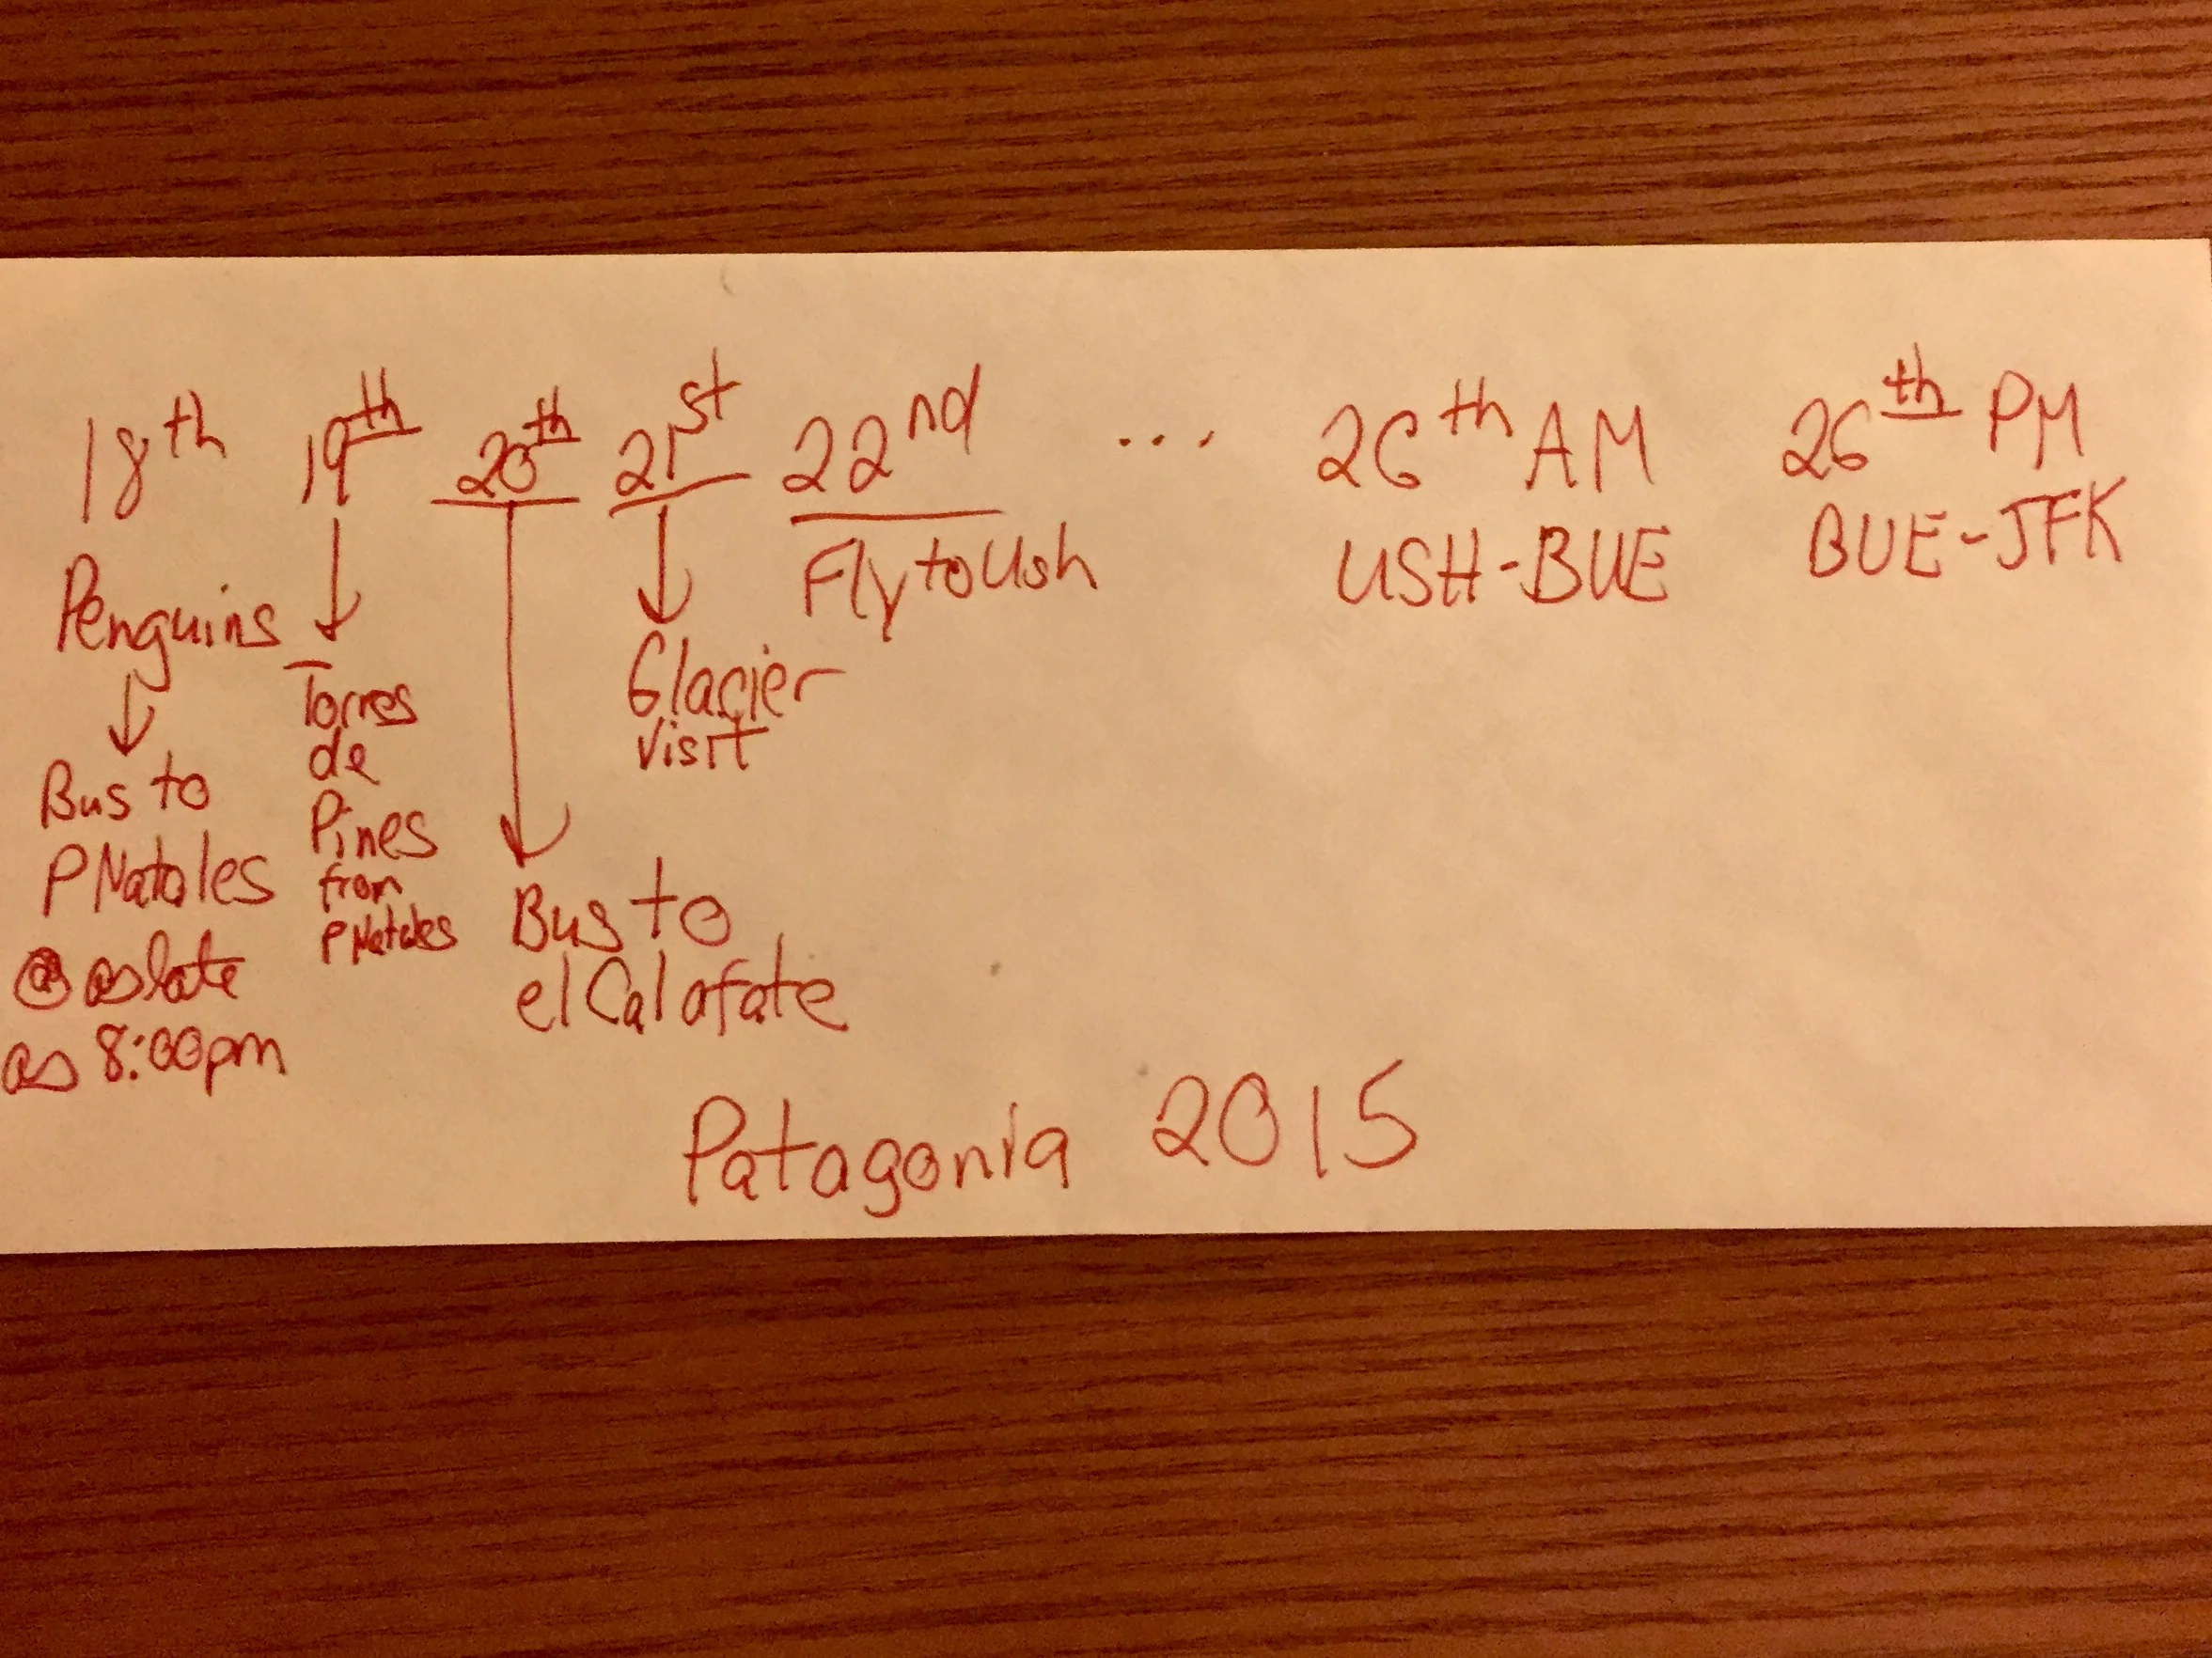 18th
Penguins
Bus to
P Natales
@ as late
as 8:00pm
19th
Torres
de
Pines
from
P Natales
20th
Bus to
el Calafate
21st
Glacier
visit
22nd
Fly to Ush
...
26th AM
USH-BUE
26th PM
BUE-JFK
Patagonia 2015